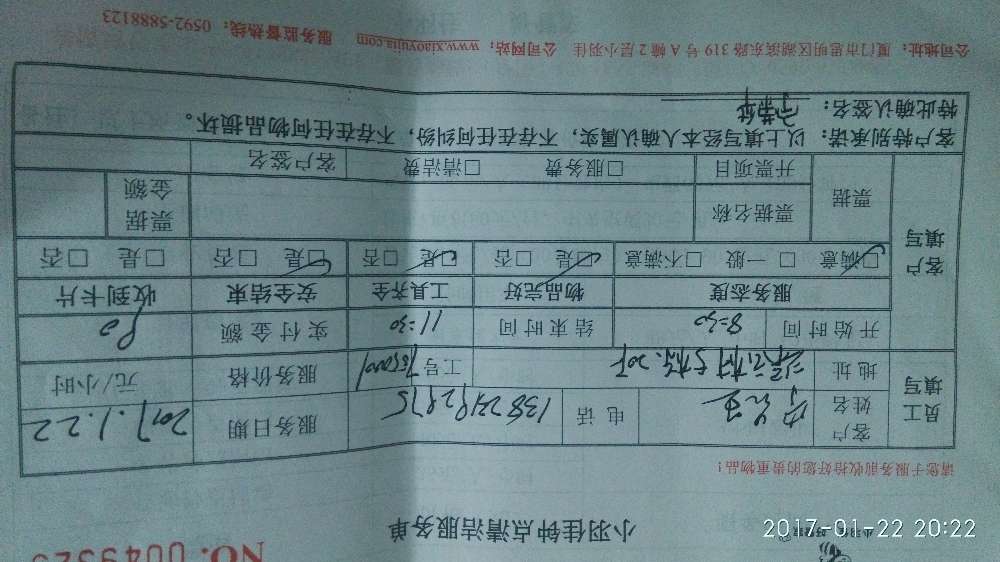 NO. 0049325
小羽佳钟点清洁服务单
请您于服务前收拾好您的贵重物品!
员工填写 客户姓名 电话 服务日期 2017.1.22
地址 工号 服务价格 元/小时
开始时间 8:30 结束时间 11:30 实付金额 90
客户填写 服务态度 物品完好 工具齐全 安全结束 收到卡片
□满意 □一般 □不满意 □是 □否 □是 □否 □是 □否 □是 □否
票据 票据名称 票据金额
开票项目 □服务费 □清洁费 客户签名
客户特别承诺:以上填写经本人确认属实,不存在任何纠纷,不存在任何物品损坏。
特此确认签名:
公司地址:厦门市思明区湖滨东路 319 号 A 幢 2 层小羽佳 公司网站:www.xiaoyujia.com 服务监督热线:0592-5888123
2017-01-22 20:22